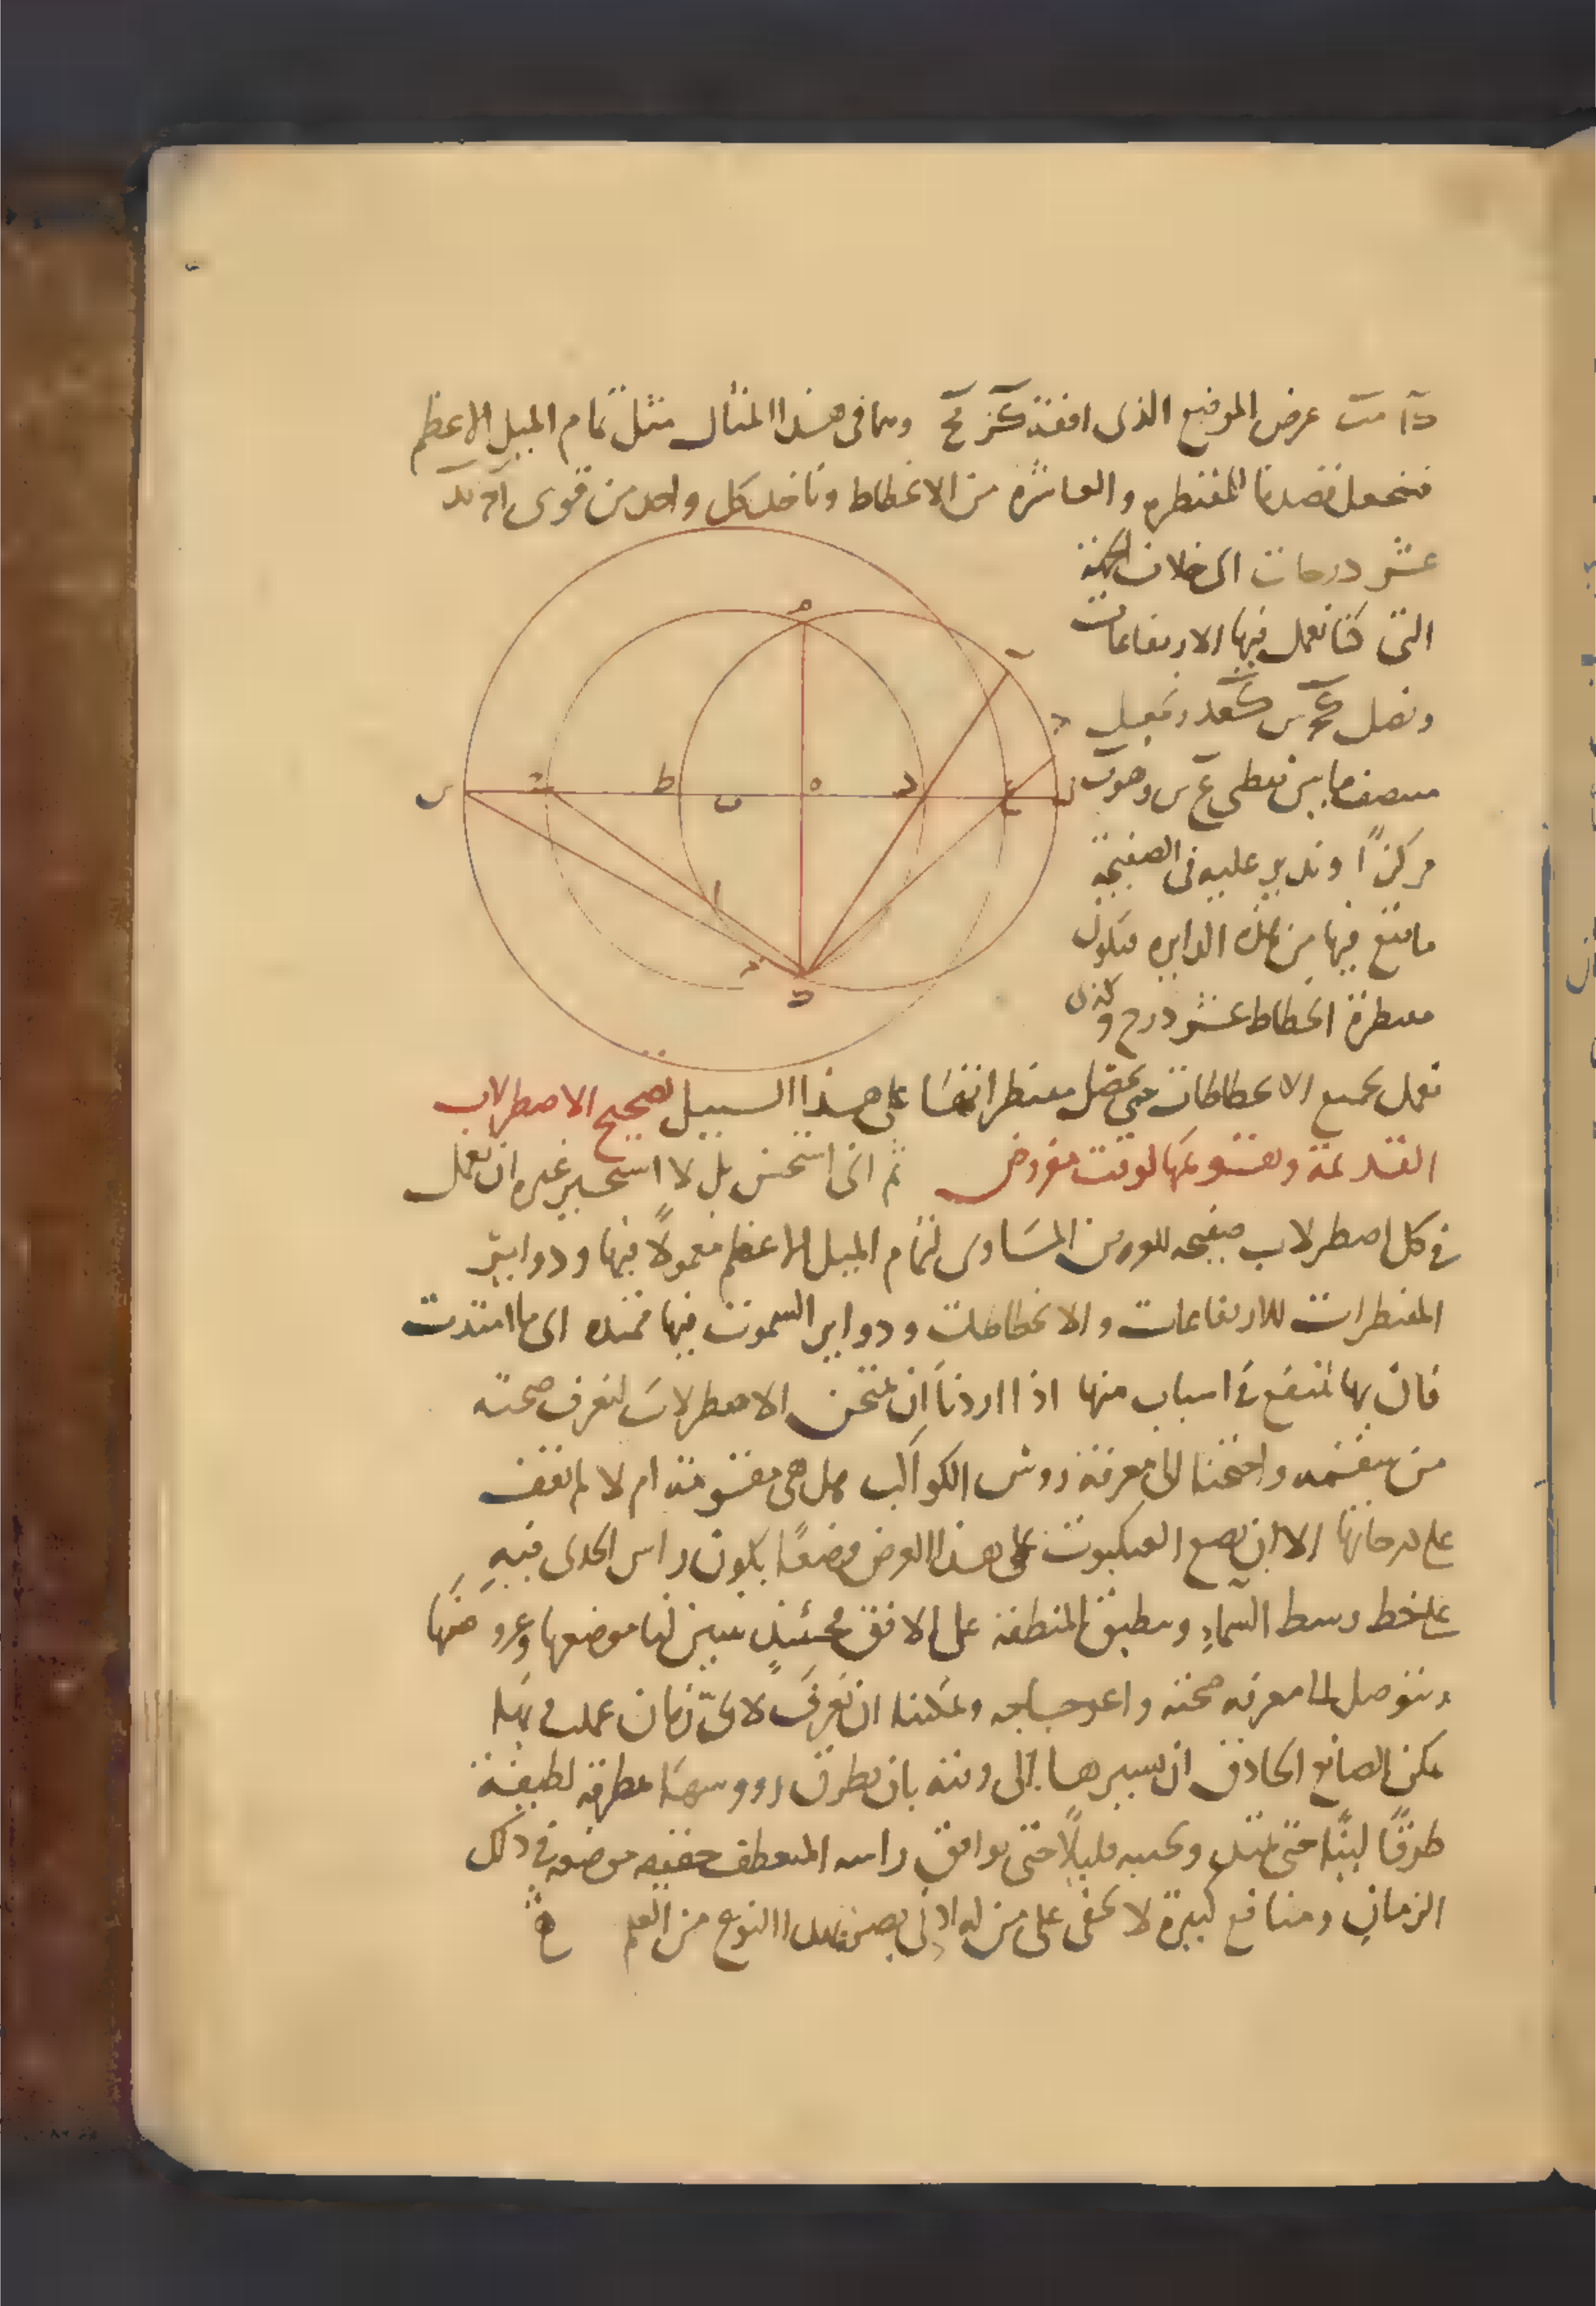 عرض الموضع الذى افقه كز مح وهما فى هذا المثال مثل تمام الميل الاعظم
فنجعل قصدنا المقنطره والعاشره من الانحطاط وناخد كل واحد من قوى
عشر درجات الى خلاف الجهة
التى كنا نعمل فيها الارتفاعات
ونصل
منتصف ما بين نقطى ع س وهو ت
مركزًا وندير عليه فى الصفيحة
ما يقع فيها من هذه الدايره فيكون
مقنطرة انحطاط عشر درج وكذى
نعمل بجميع الانحطاطات حتى تحصل مقنطراتها على هذا السبيل تصحيح الاصطرلاب
القديمة وتقويمها لوقت مفروض ثم انى استحسن بل لا استحير غيره ان نعمل
فى كل اصطرلاب صفيحه للعرض المساوى لتمام الميل الاعظم معمولًا فيها ودواير
المقنطرات للارتفاعات والانحطاطات ودواير السموت فيها ممتده الى ما امتدت
فان بها لمنتفع فى اسباب منها اذا اردنا ان نمتحن الاصطرلاب لنعرف صحته
من سقمه واحتجنا الى معرفة روس الكواكب هل هى مقومة ام لا لم نقف
على درجاتها الا ان نضع العنكبوت على هذا العرض وضعًا يكون راس الجدى فيه
على خط وسط السماء وينطبق المنطقة على الافق فحينئذ تبين لنا موضعها وعروضها
ونتوصل الى معرفه صحته واعوجاجه ويمكننا ان نعرف لاىّ زمان عملت
يمكن الصانع الحاذق ان يسيرها الى وقته بان يطرق رووسها بمطرقه لطيفة
طرقًا لينًا حتى تمتد ويحنيه قليلًا حتى يوافق راسه المنعطف حقيقه موضعه فى ذلك
الزمان ومنافع كبيرة لا تخفى على من له ادنى بصر بهذا النوع من العلم